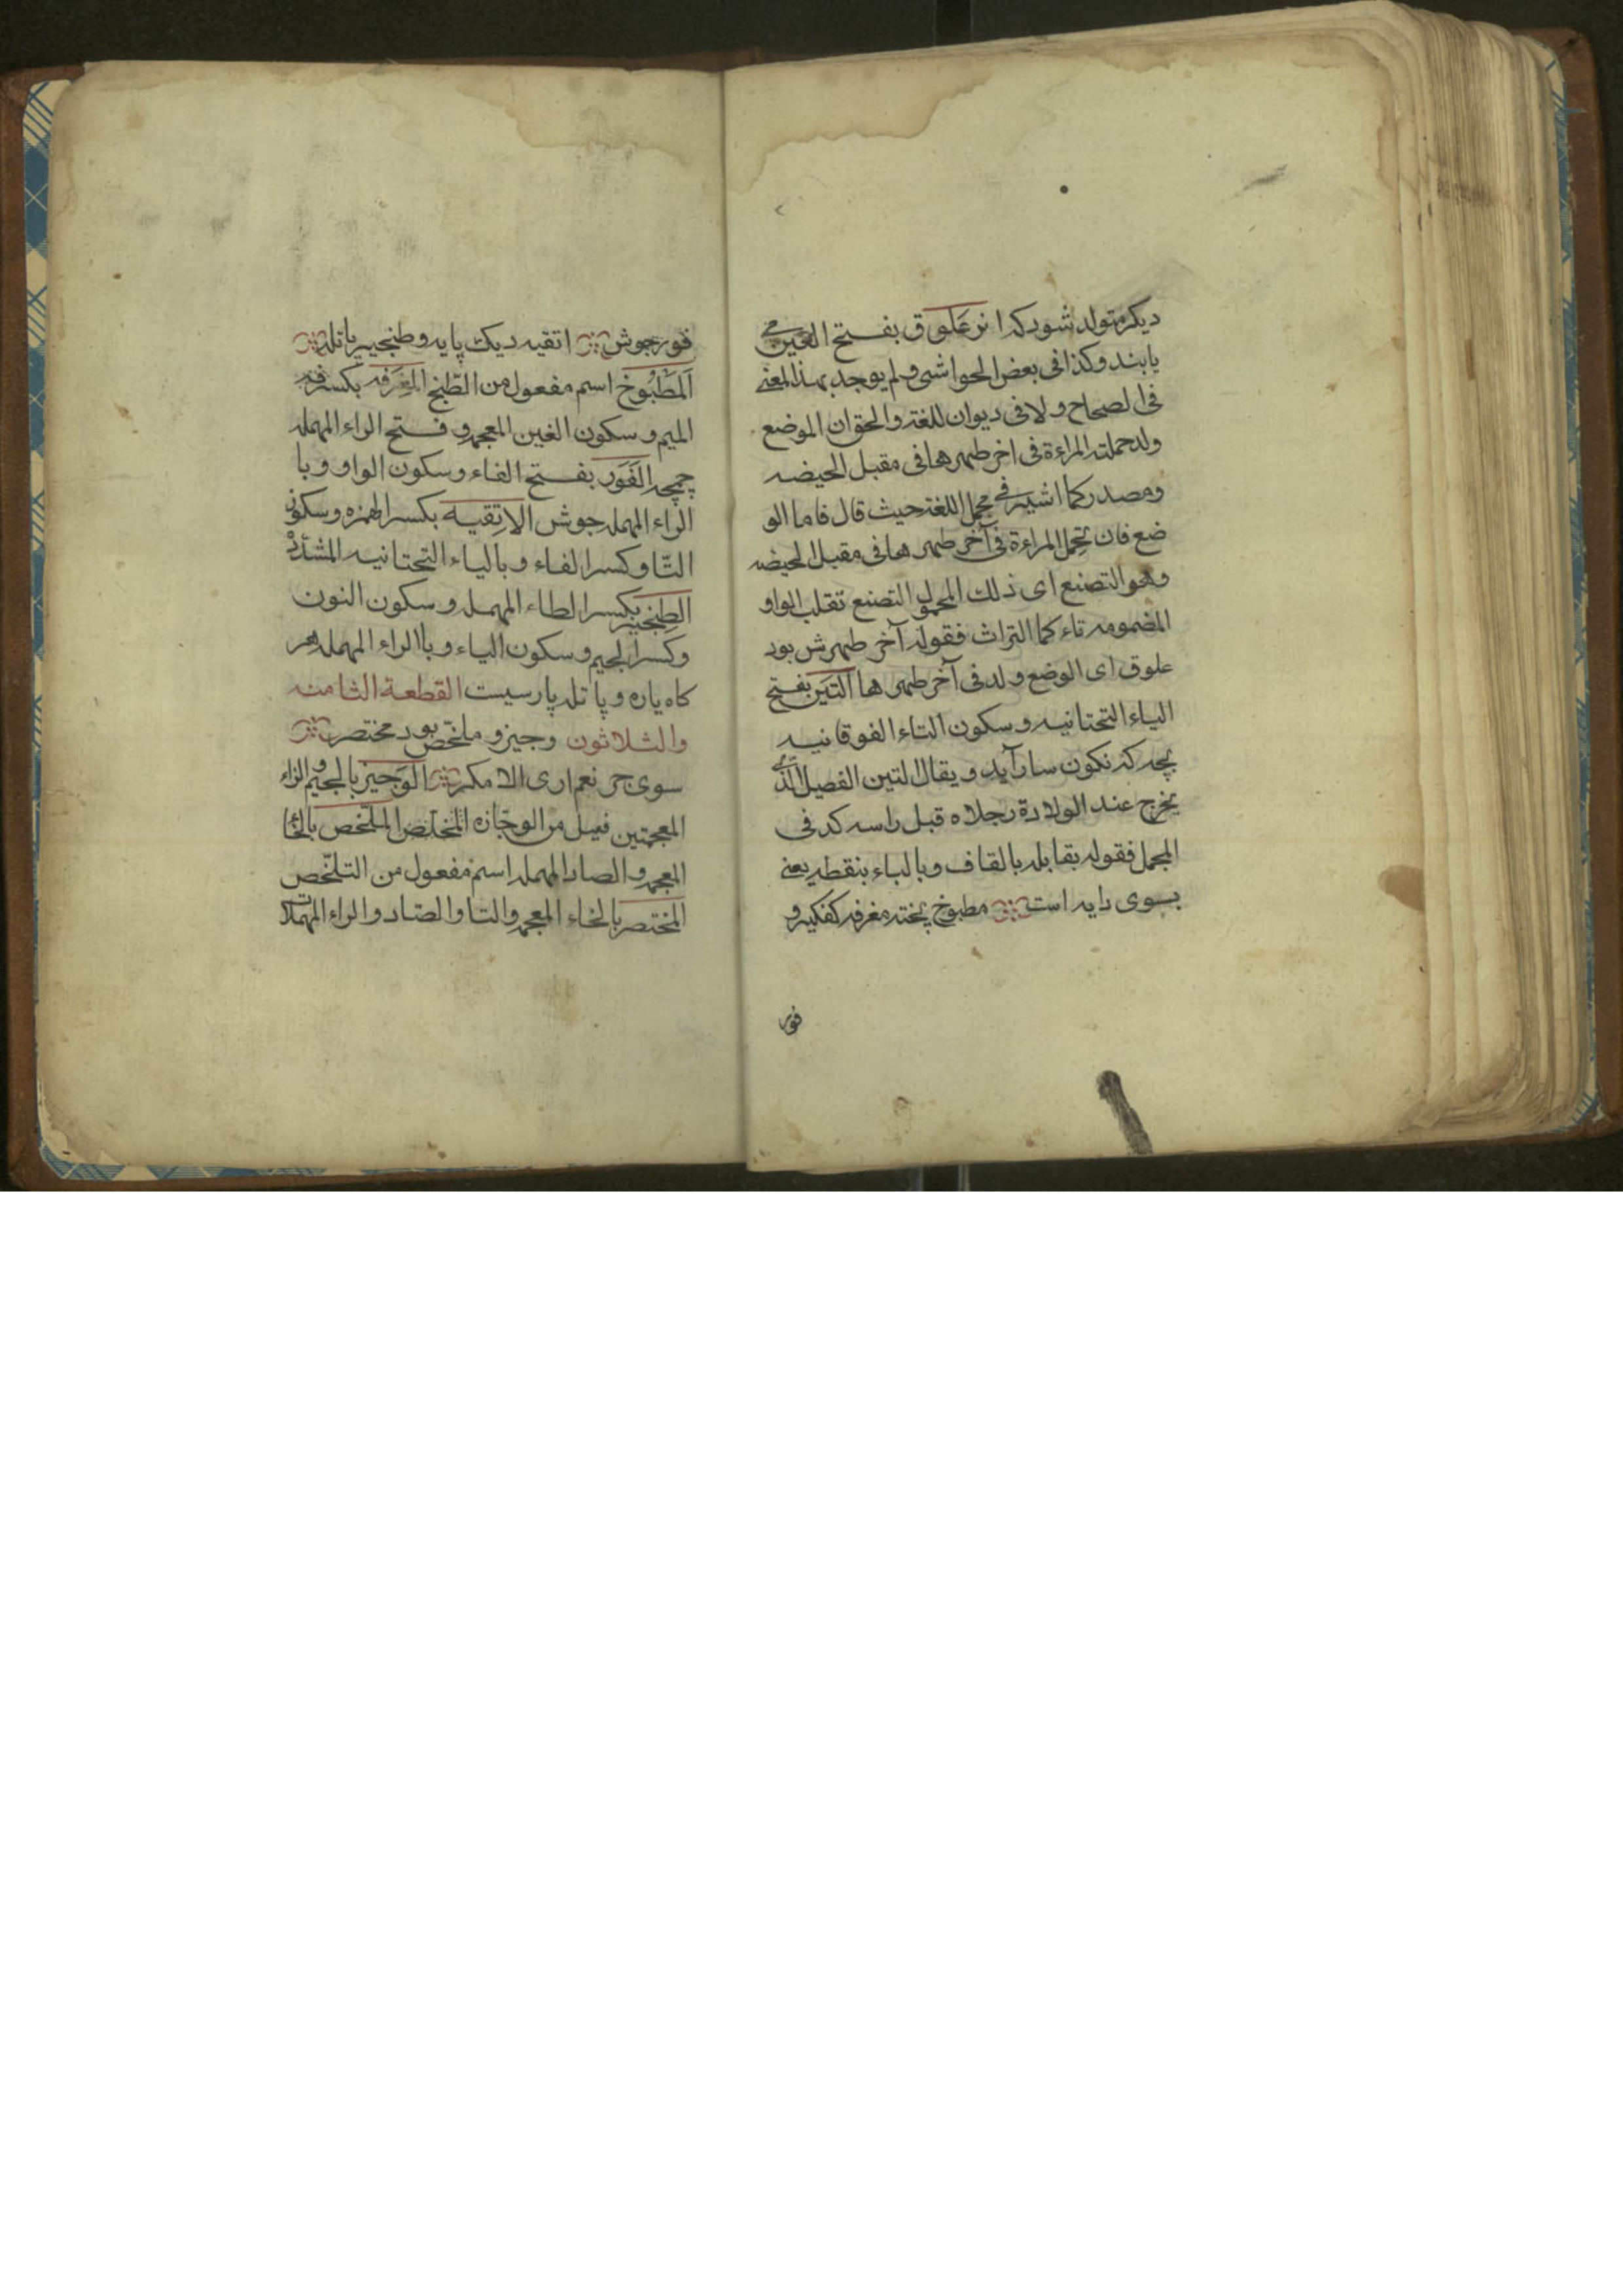 دیکر متولد شود که از علوق بفتح العین می
یابند وکذا فی بعض الحواشی ولم یوجد بهذا المعنی
فی الصحاح ولا فی دیوان للغة والحق ان الموضع
ولد حملته المراءة فی اخر طهرها فی مقبل الحیضه
ومصدر کما اشیر فی مجمل اللغة حیث قال فاما الو
ضع فان تحمل المراءة فی آخر طهرها فی مقبل الحیضه
وهو التضع ای ذلک المحمول التضع تقلب الواو
المضمومه تاء کما التراث فقوله آخر طهرش بود
علوق ای الوضع ولد فی آخر طهرها الیتن بفتح
الیاء التحتانیه و سکون التاء الفوقانیه
بچه که نکون سار آید و یقال الیتن الفصیل الذی
یخرج عند الولادة رجلاه قبل راسه کد فی
المجمل فقوله بقابله بالقاف وبالباء بنقطه یعنی
بسوی دایه است مطبوخ پخته مغرفه کفکیر و
فور
فور جوش اتقیه دیک پایه و طنجیر پاتله
المطبوخ اسم مفعول من الطبخ المغرفه بکسر
المیم و سکون الغین المعجمه و فتح الراء المهمله
چمچه الفور بفتح الفاء و سکون الواو و با
الراء المهمله جوش الاتقیه بکسر الهمزه و سکون
التا و کسر الفاء و بالیاء التحتانیه المشدد
الطنجیر بکسر الطاء المهمله و سکون النون
وکسر الجیم و سکون الیاء و بالراء المهمله
کاه یاره و پاتله پارسیست القطعة الثامنه
والثلاثون وجیز و ملخص بود مختصر
سوی جز نعم اری الا مکر الوجیز بالجیم و الزاء
المعجمتین فعیل من الوجازه المخلص الملخص بالخا
المعجمه و الصاد المهمله اسم مفعول من التلخص
المختصر بالخاء المعجمه والتا والصاد والراء المهملات